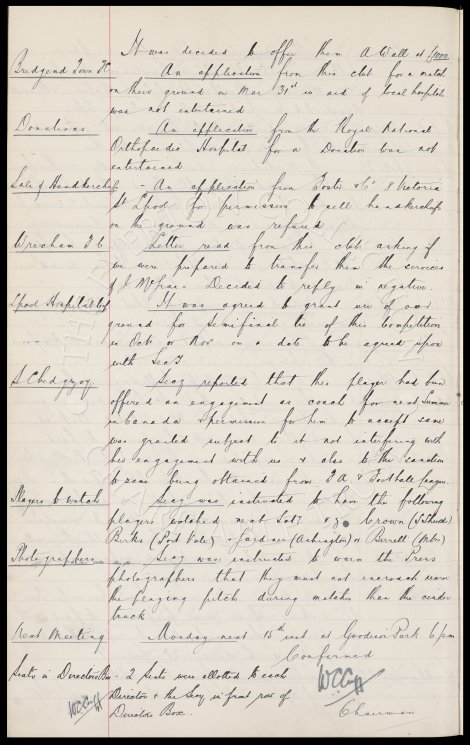 It was decided to offer them A Wall at
Bridgend Town FC An application from this club for a match
on their ground on Mar 31st in aid of local hospitals
was not entertained
Donations An application from the Royal National
Orthopaedic Hospital for a Donation was not
entertained
Sale of Handkerchiefs - An application from Foster & Co 8 Victoria
St Lpool for permission to sell handkerchiefs
on the ground was refused
Wrexham FC Letter read from this club asking if
we were prepared to transfer them the services
of J McGraw. Decided to reply in negative.
Lpool Hospital Cup It was agreed to grant use of our
ground for Semi final tie of this Competition
in Oct or Nov on a date to be agreed upon
with Secy.
S Chedgzoy Secy reported that this player had been
offered an engagement as coach for next Summer
in Canada & permission for him to accept same
was granted subject to it not interfering with
his engagement with us & also to the sanction
to same being obtained from FA & Football League
Players to Watch Secy was instructed to have the following
players watched next Saty
Birks (Port Vale) Jordan (Ashington) & Birrell
Photographers Secy was instructed to warn the Press
photographers that they must not encroach nearer
the playing pitch during matches than the cinder
track
Next Meeting Monday next 15th inst at Goodison Park 6 pm
Confirmed
Seats in Directors Box - 2 Seats were allotted to each
WCCuff
Director & the Secy in front row of
WCCuff
Directors Box.
Chairman